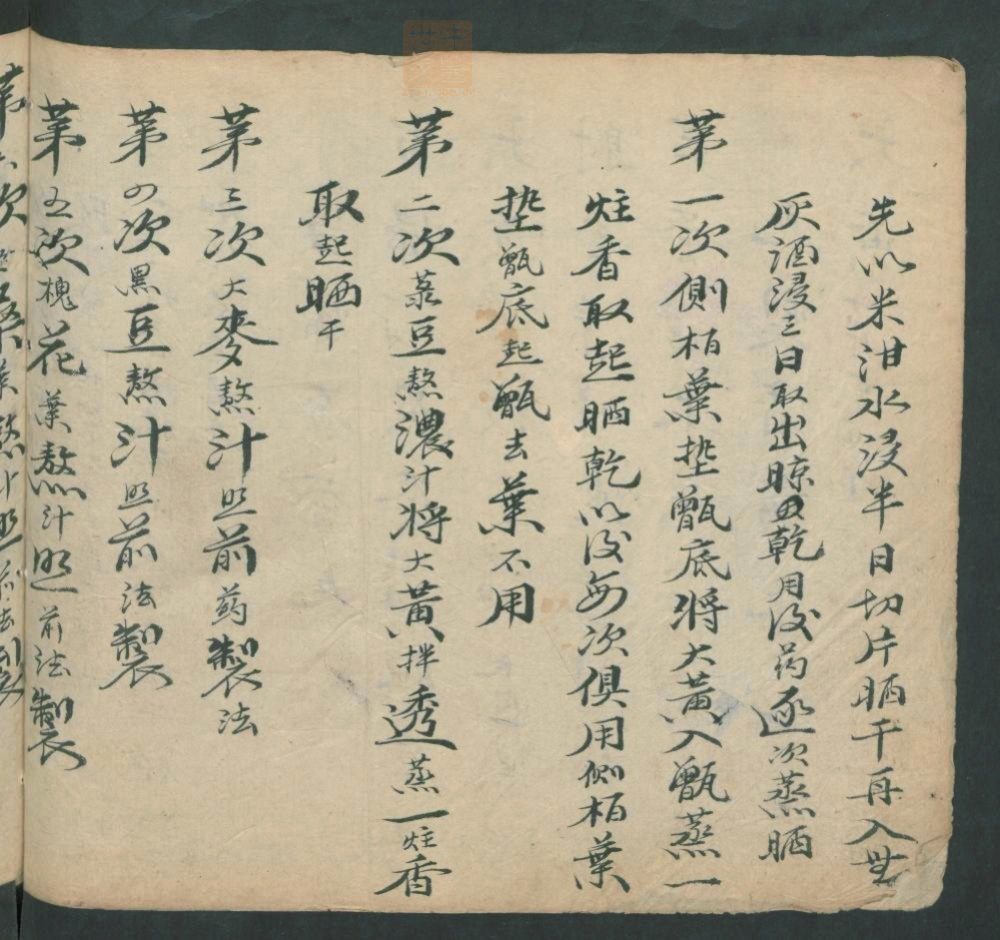 先以米泔水浸半日切片晒干再入無
灰酒浸三日取出晾乾用後葯逐次蒸晒
苐一次側柏葉垫甑底将大黄入甑蒸一
炷香取起晒乾以後每次俱用側柏葉
垫甑底起甑去葉不用
苐二次菉豆熬濃汁将大黄拌透蒸一炷香
取起晒干
苐三次大麥熬汁照前葯製法
苐四次黑豆熬汁照前法製
苐五次槐花葉熬汁照前法製
苐六次桑葉熬汁照前法製